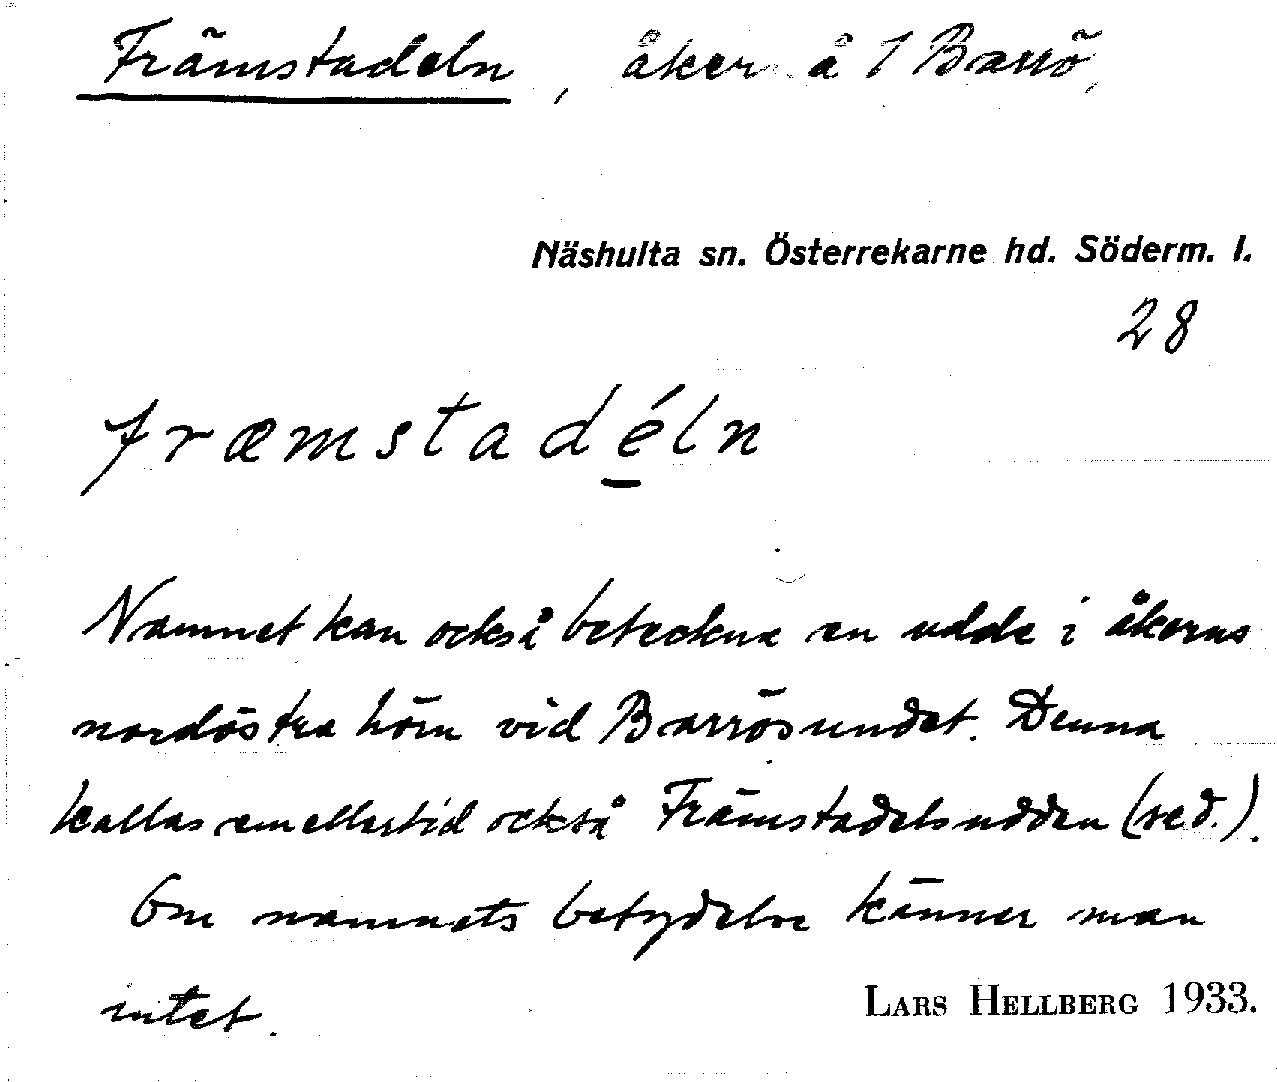 Främstadeln, åker å 1 Barrö,
Näshulta sn. Österrekarne hd. Söderm. l.
28
fræmstadéln
Namnet kan också beteckna en udde i åkerns
nordöstra hörn vid Barrösundet. Denna
kallas emellertid också Främstadelsudden (se d.).
Om namnets betydelse känner man
intet.
LARS HELLBERG 1933.